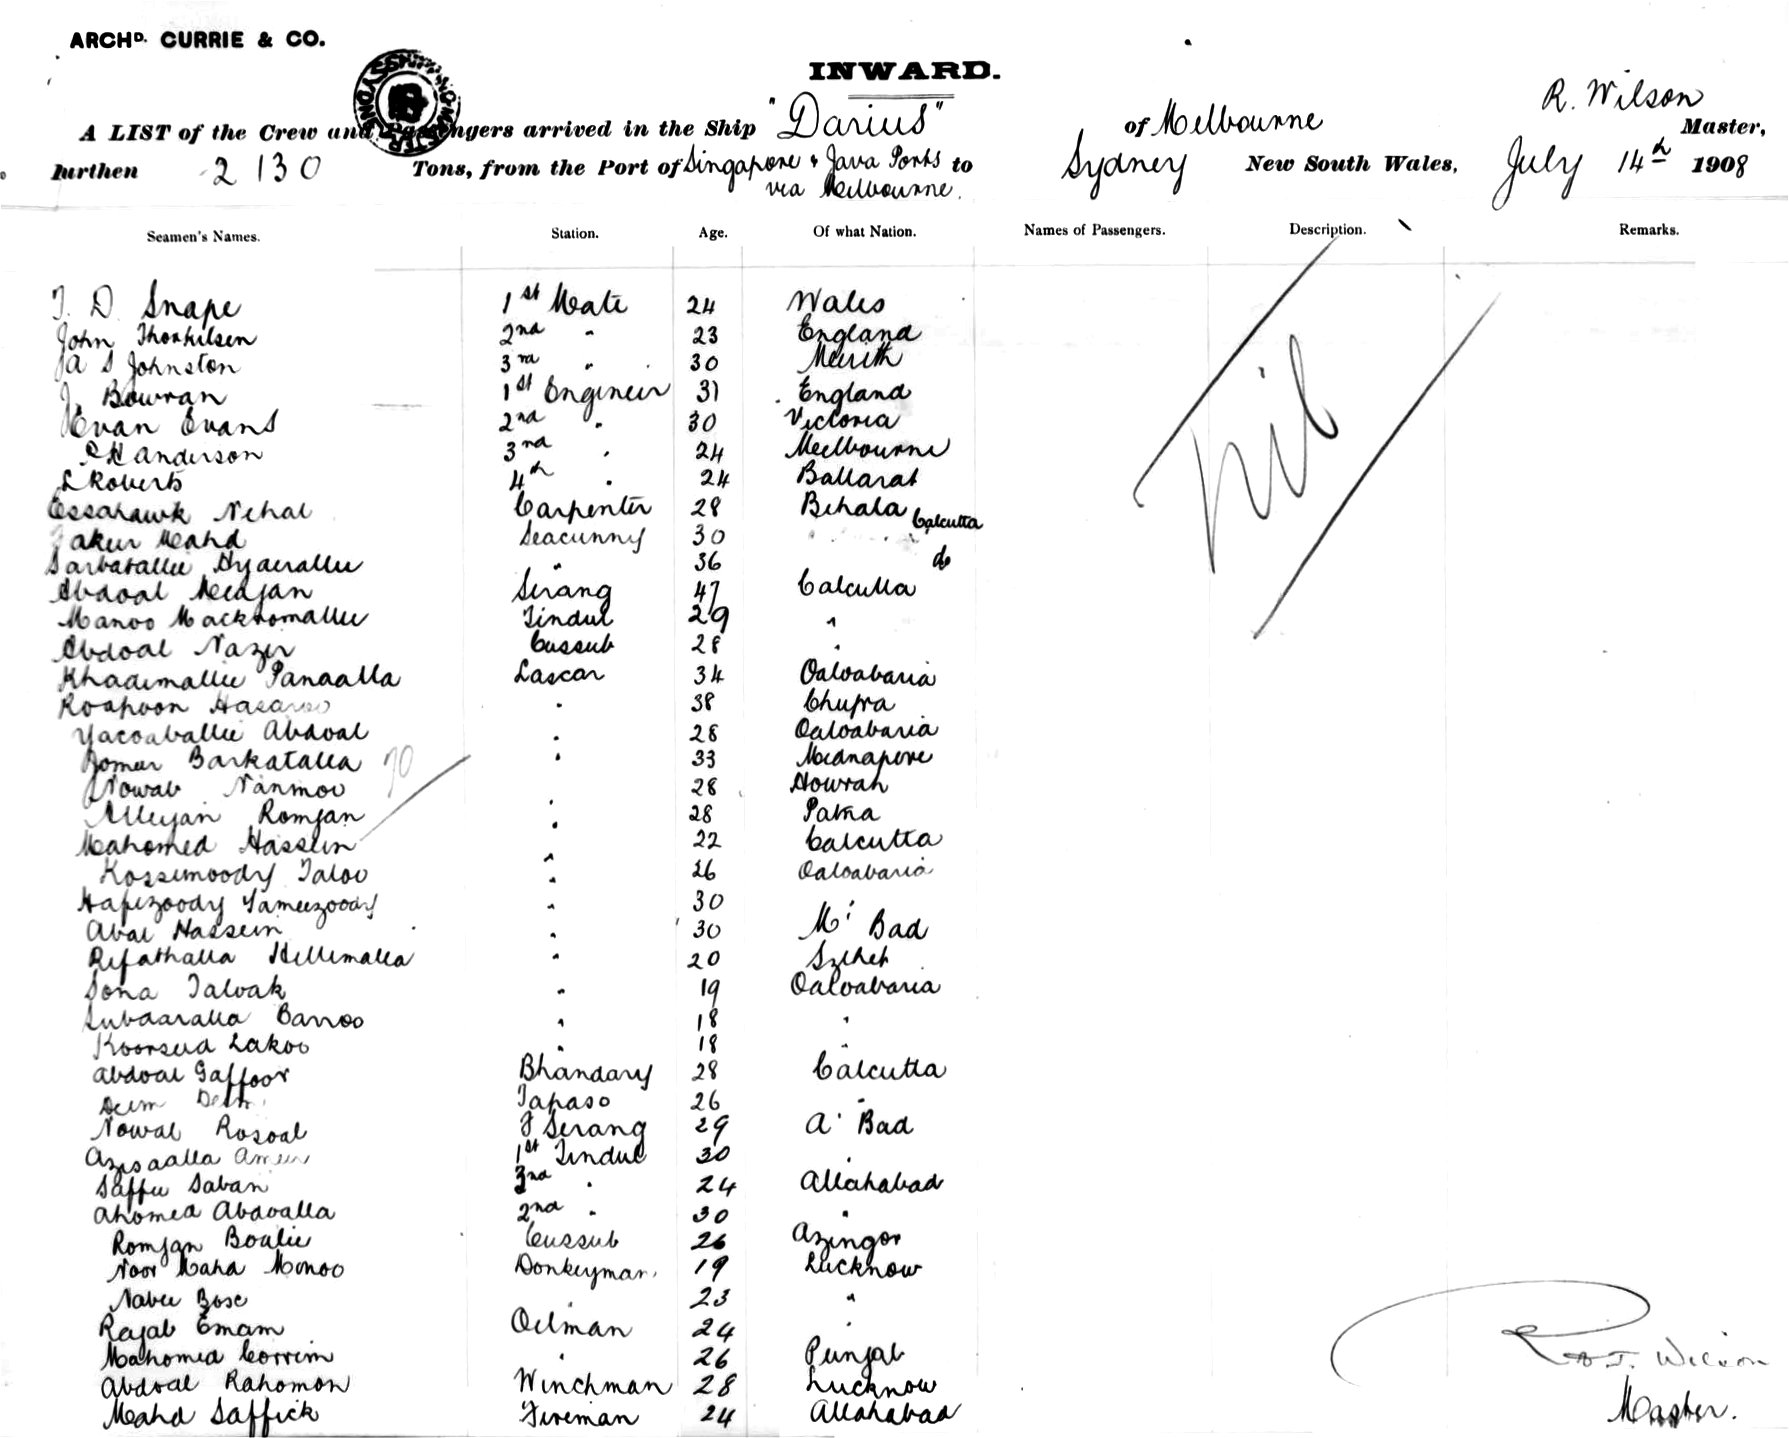 ARCHD. CURRIE & CO.
INWARD.
R. Wilson
A LIST of the Crew and Passengers arrived in the Ship "Darius" of Melbourne Master,
Burthen 2130 Tons, from the Port of Singapore & Java Ports to Sydney New South Wales, July 14th 1908
via Melbourne.
Seamen's Names. Station. Age. Of what Nation. Names of Passengers. Description. Remarks.
Nil
D Snape 1st Mate 24 Wales
John Thorkilsen 2nd " 23 England
A S Johnston 3rd " 30
J. Bowran 1st Engineer 31 England
Evan Evans 2nd " 30 Victoria
Anderson 3rd " 24 Melbourne
L Roberts 4th " 24 Ballarat
Essahawk Nehal Carpenter 28 Behala Calcutta
Mahd Seacunny 30
Sarbatallee Hyderallee " 36 do
Abdoal Meajan Serang 47 Calcutta
Manoo Mackromallee Tindul 29 "
Abdoal Nazir Cussub 28 "
Khadimallee Panaalla Lascar 34 Oaloabaria
Roapoon " 38 Chupra
Yacoaballee Abdoal " 28 Oaloabaria
Jomer Barkatalla " 33 Mednapore
Nowab Nanmoo 28 Howrah
Alleyjan Romjan " 28 Patna
Mahomed Hassein " 22 Calcutta
Kossimoody Taloo " 26 Oaloabaria
Hafizoody Tameezoody " 30
Abal Hassein " 30 M' Bad
Refathalla Hellimalla " 20 Szlhet
Sona Talvak " 19 Oaloabaria
Subdaralla Barroo " 18 "
Koorsed Lakoo " 18 "
Abdoal Gaffoor Bhandary 28 Calcutta
Topaso 26 "
Nowab Rosoal F Serang 29 A' Bad
Azisaalla Ameer 1st Tindul 30 "
Saffee Saban 2nd " 24 Allahabad
Ahomed Abdoalla 2nd " 30 "
Romjan Boalie Cussub 26 Azingor
Noor Mahd Monoo Donkeyman 19 Lucknow
Nabee Bose " 23 "
Rajab Emam Oilman 24 "
Mahomed Corrim " 26 Punjab
Abdoal Rahomon Winchman 28 Lucknow
Mahd Saffick Fireman 24 Allahabad
Wilson
Master.